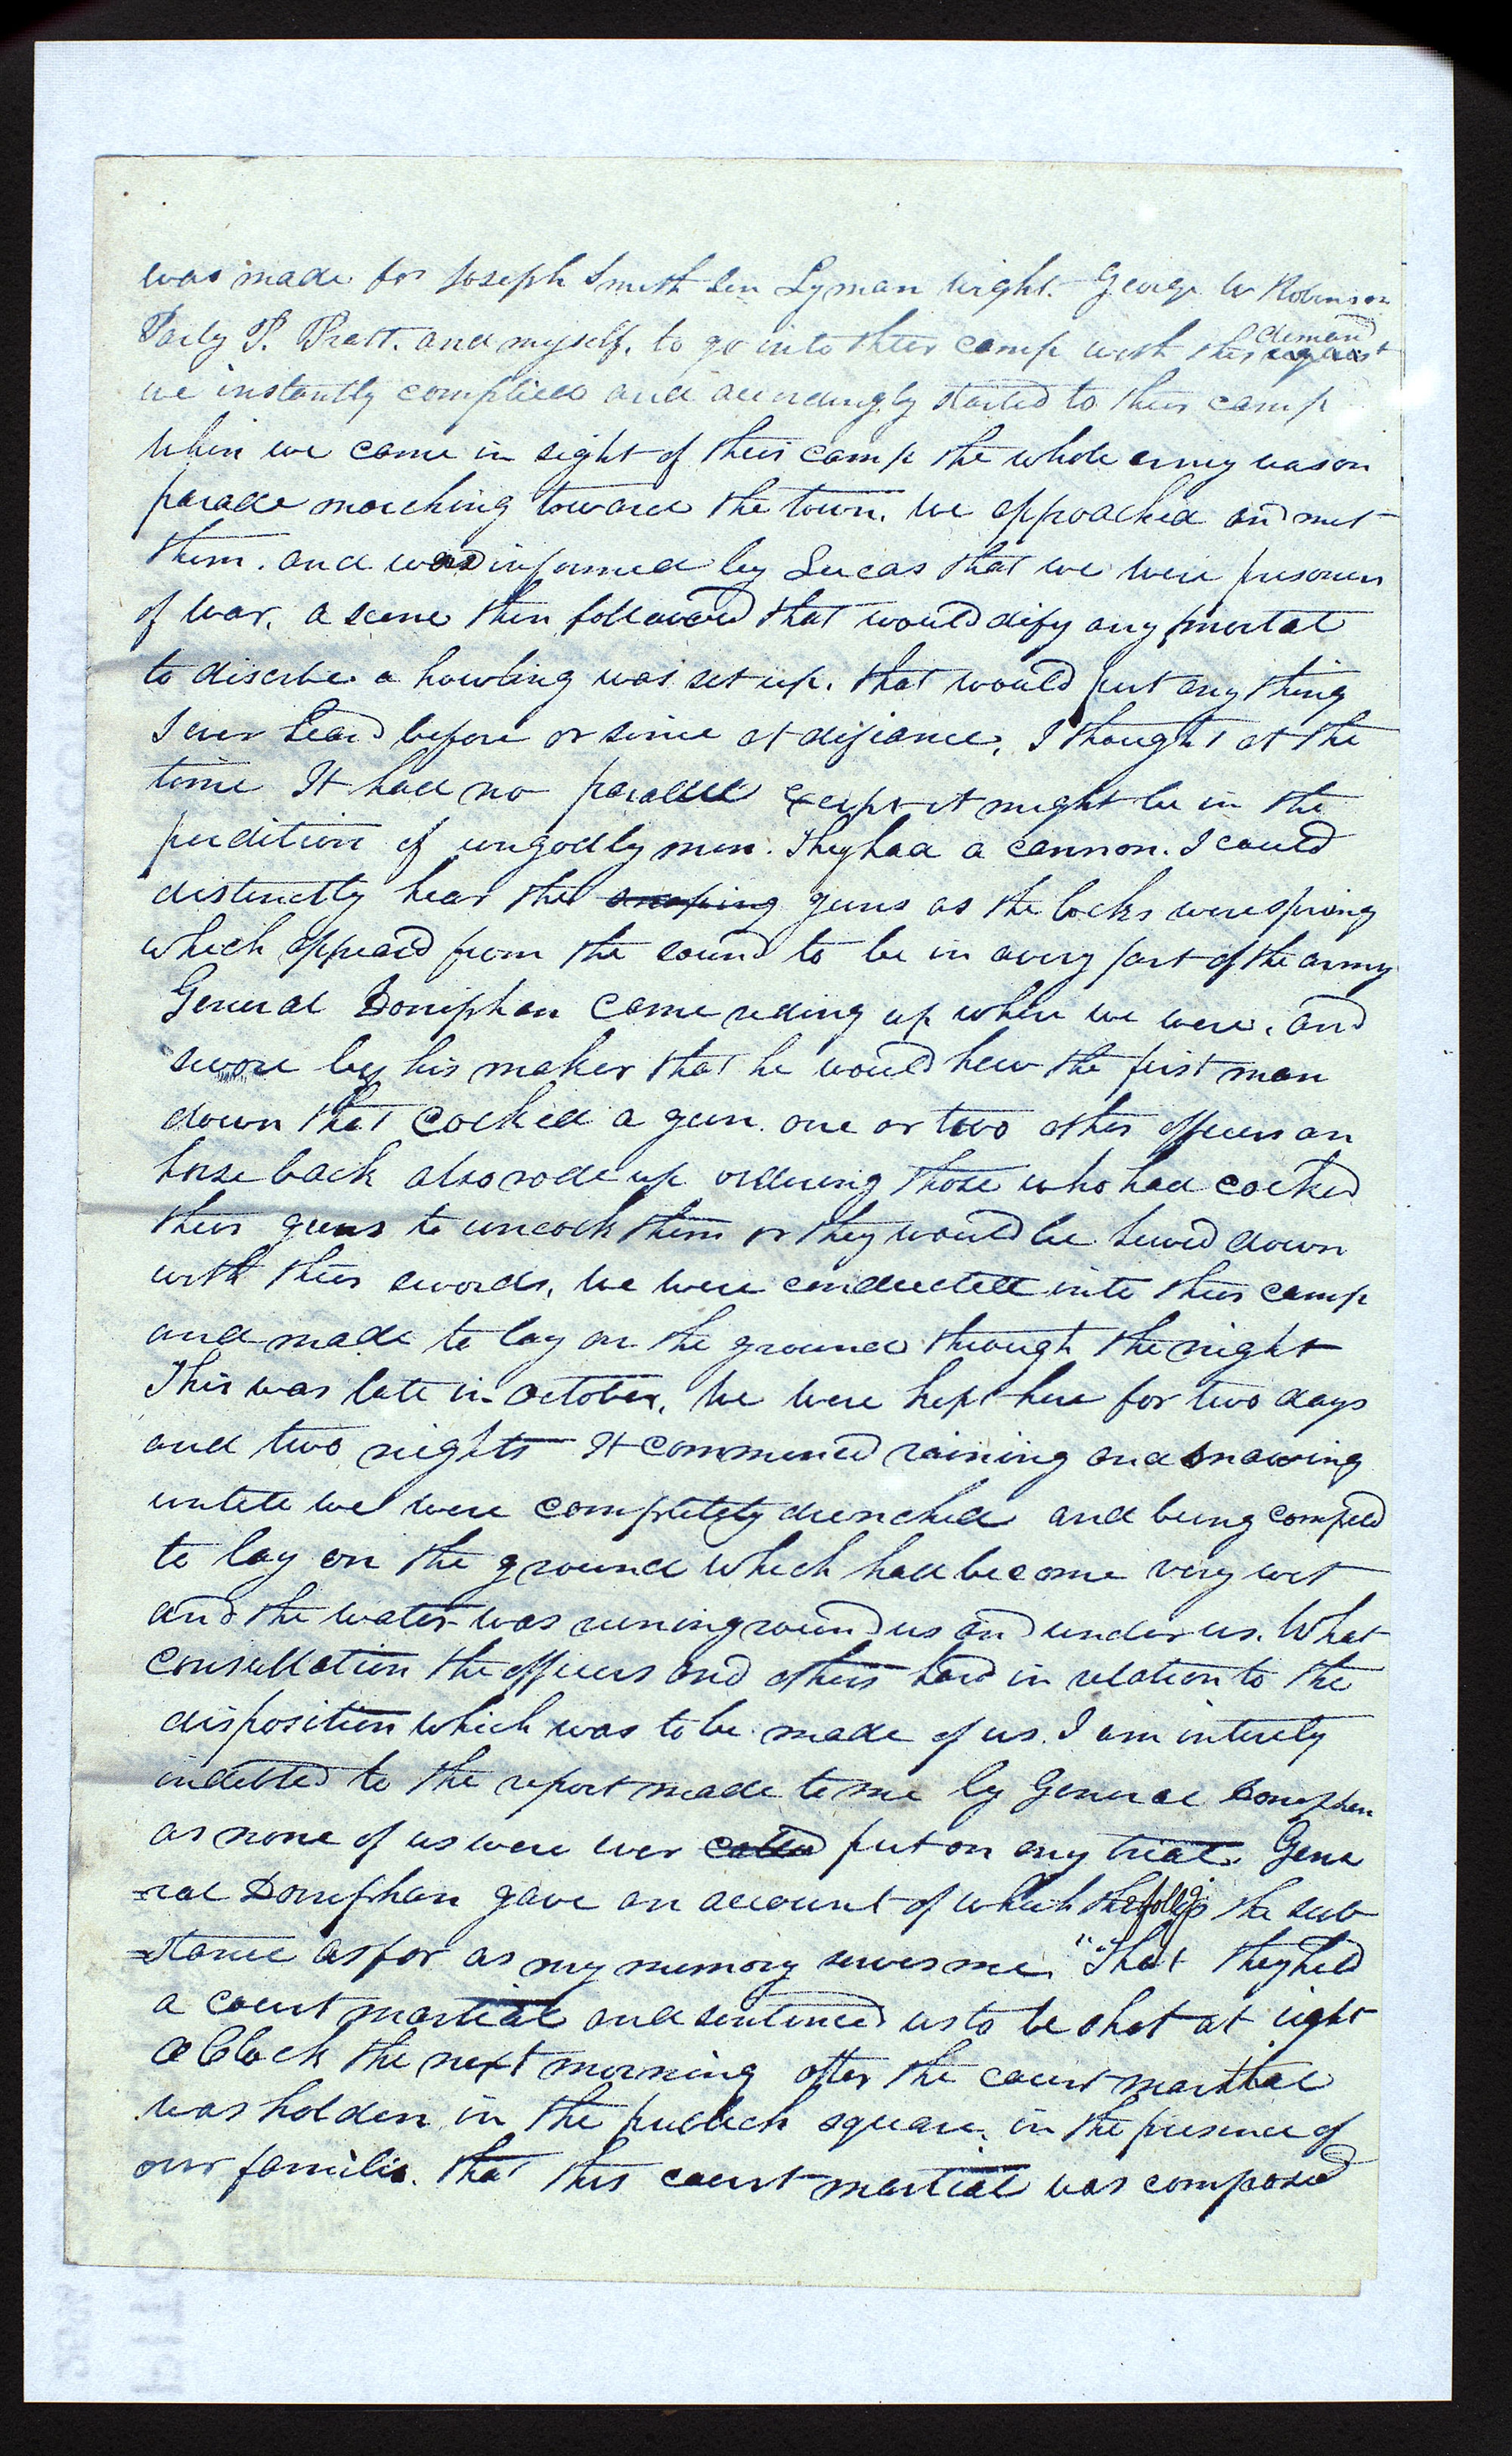 was made for Joseph Smith Sen Lyman Wight. George W Robinson
Parly P. Pratt. and myself, to go into their camp with this demand request
we instantly complied and accordingly started to their camp
When we came in sight of their camp the whole army was on
parade marching toward the town, we approached and met
them. and was informed by Lucas that we were prisoners
of war, a scene then followed that would dify any mortal
to discribe a howling was set up, that would put any thing
I ever heard before or since at difiance, I thought at the
time It had no paralell except it might be in the
perdition of ungodly men. They had a cannon. I could
distinctly hear the snaping guns as the locks were sprung
which appeard from the sound to be in every part of the army
General Doniphan came riding up where we were, and
swore by his maker that he would hew the first man
down that cocked a gun. one or two other officers on
horse back also rode up ordering those who had cocked
their guns to uncock them or they would be hewed down
with their swords, we were conducted into their camp
and made to lay on the ground through the night
This was late in October, We were kept here for two days
and two nights It commenced raining and snowing
untill we were completely drenched and being compeled
to lay on the ground which had become very wet
and the water was runing round us and under us. What
consultation the officers and others had in relation to the
disposition which was to be made of us. I am intirely
indebted to the report made to me by General Doniphan
as none of us were ever called put on any trial. Gene
=ral Doniphan gave an account of which the follg is the sub
=stance as far as my memory serves me, "That they held
a court martial and sentenced us to be shot at eight
O Clock the next morning after the court martial
was holden in the publick square, in the presence of
our familis. that this court martial was composed